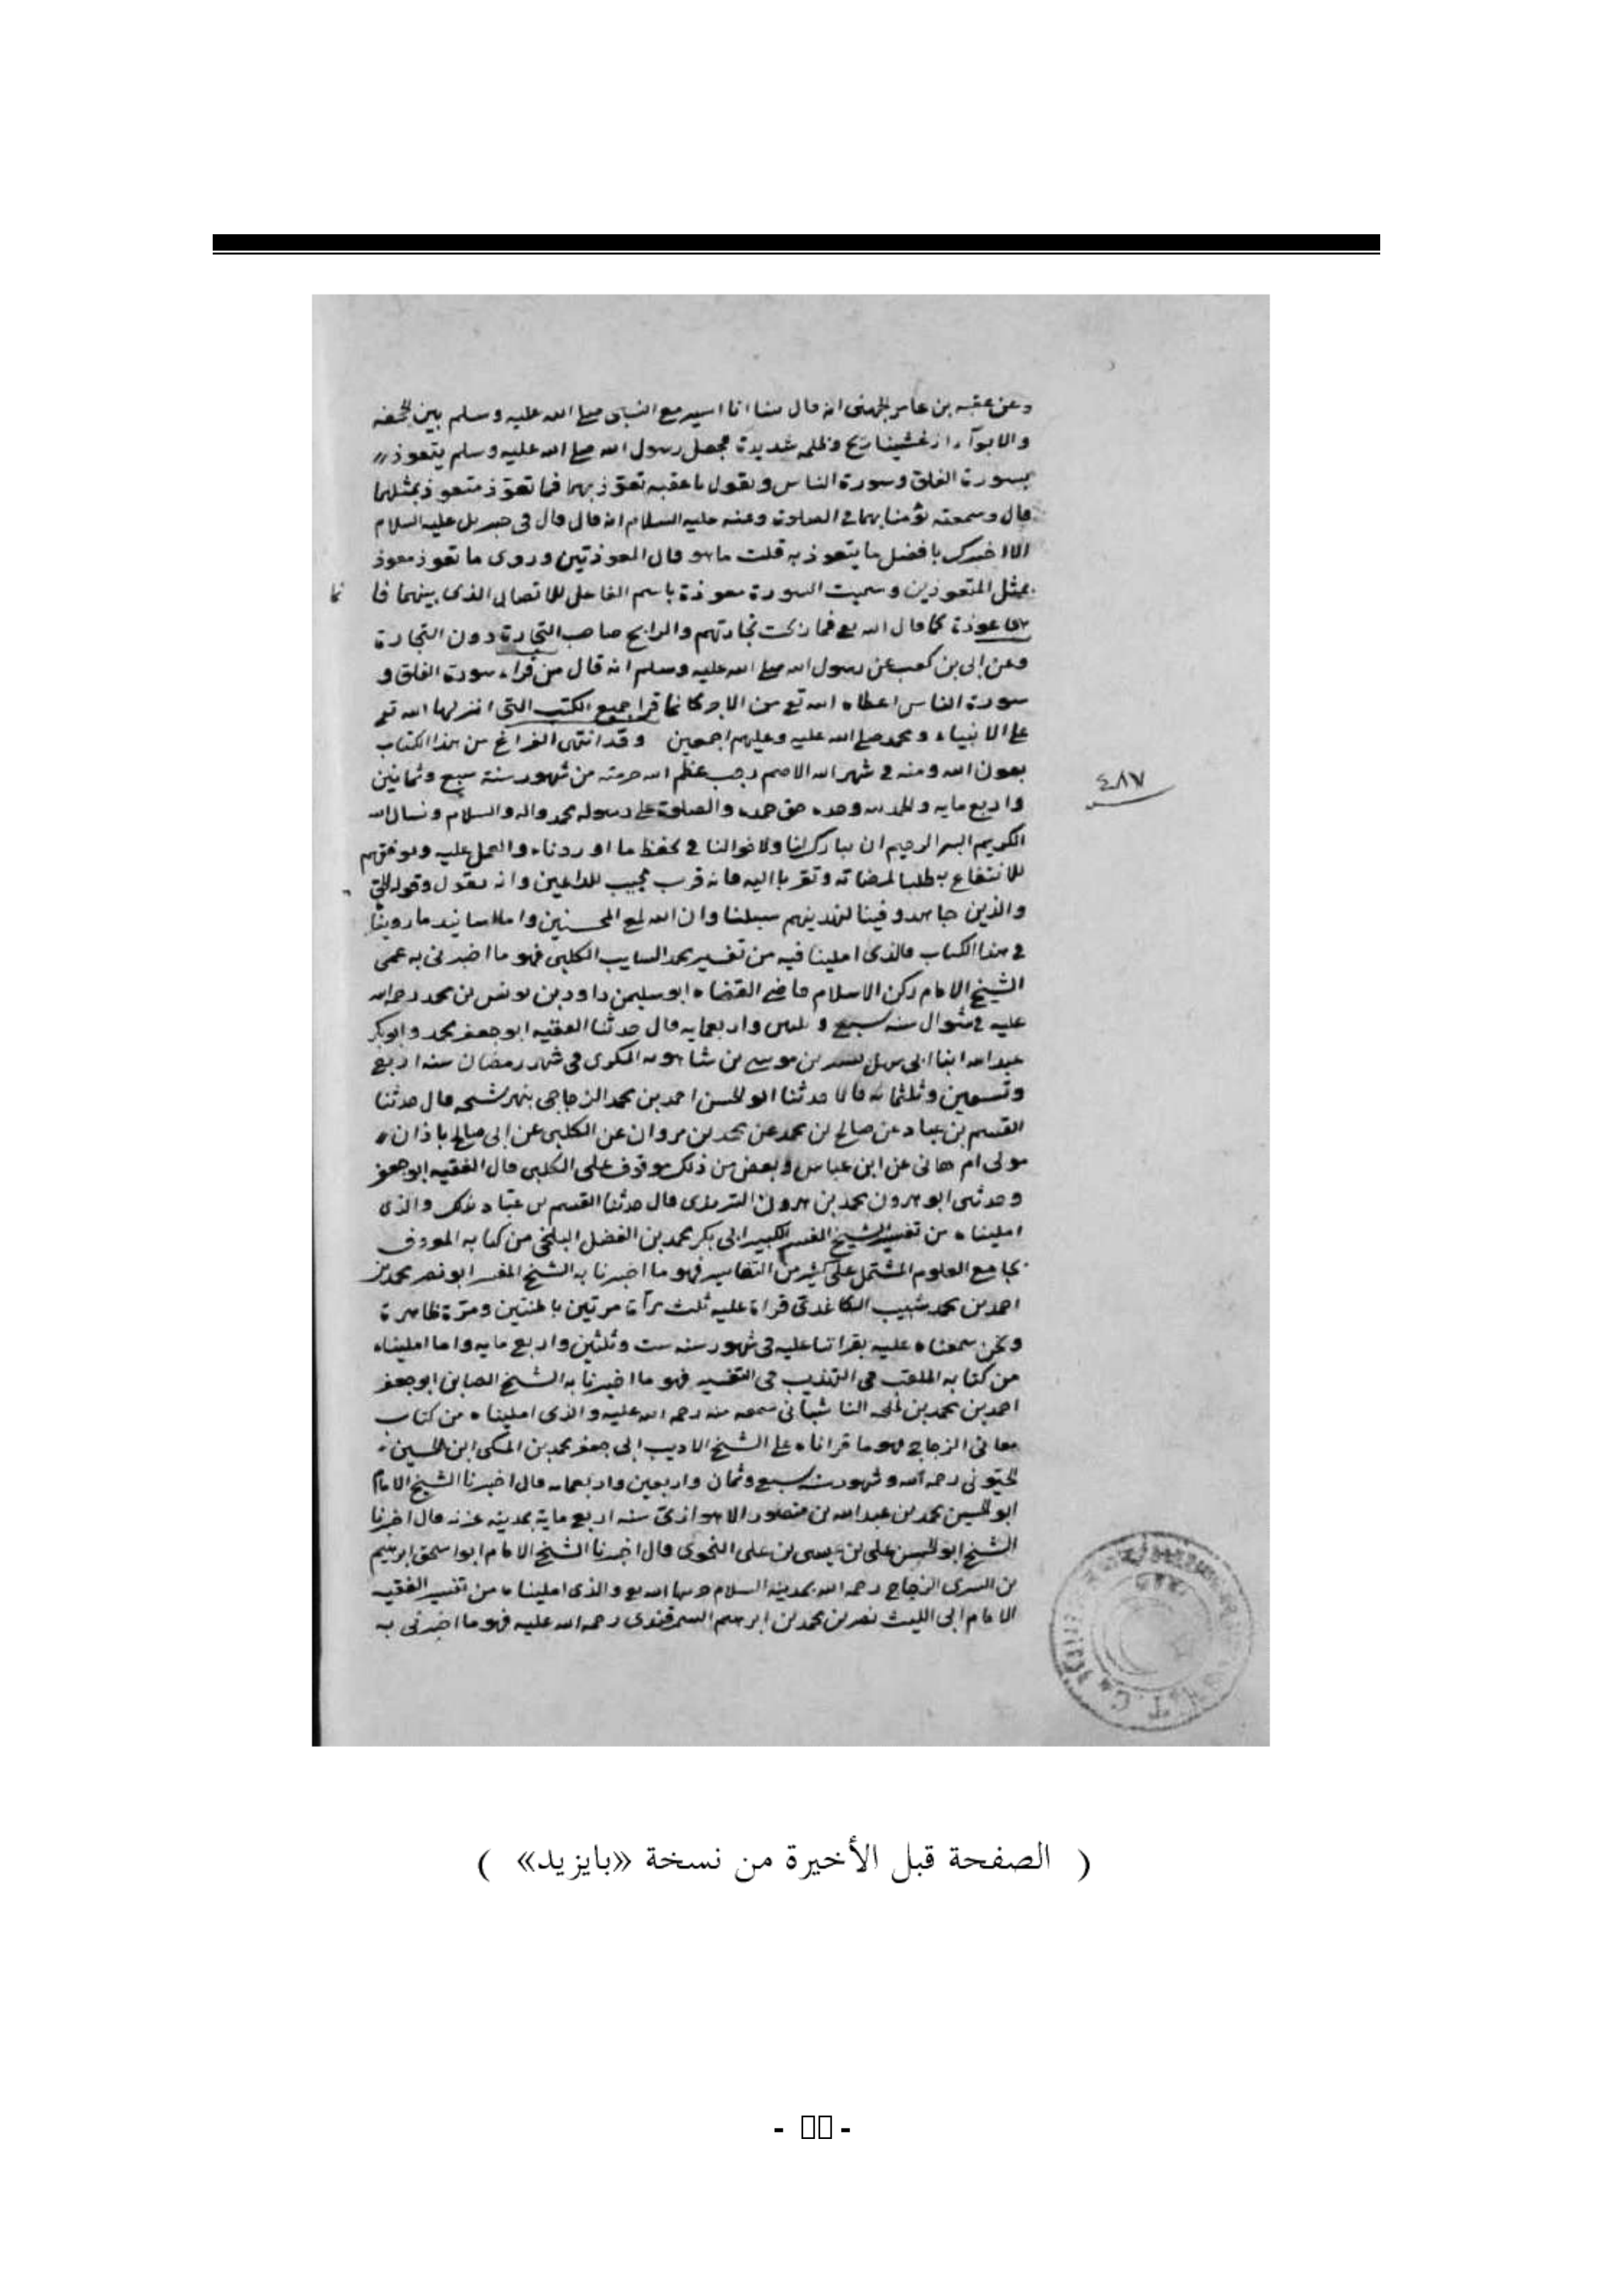 وعن عقبه بن عامر الجهنى انه قال بينا انا اسير مع النبى صلى الله عليه وسلم بين الجحفه
والابوآء اذ غشينا ريح وظلمه شديدة فجعل رسول الله صلى الله عليه وسلم يتعوذ
بسورة الفلق وسورة الناس ويقول يا عقبه تعوّذ بهما فما تعوّذ متعوذ بمثلهما
قال وسمعته يؤمنا بهما فى الصلوة وعنه عليه السلام انه قال قال لى جبريل عليه السلام
الا اخبرك بافضل ما يتعوذ به قلت ما هو قال المعوذتين وروى ما تعوذ معوذ
بمثل المتعوذين وسميت السورة معوذة باسم الفاعل للاتصال الذى بينهما فا
نما
عوذة كما قال الله تع فما ربحت تجارتهم والرابح صاحب التجارة دون التجارة
وعن ابى بن كعب عن رسول الله صلى الله عليه وسلم انه قال من قراء سورة الفلق و
سورة الناس اعطاه الله تع من الاجر كانما قرا جميع الكتب التى انزلها الله تع
على الانبياء ومحمد صلى الله عليه وعليهم اجمعين وقد انتهى الفراغ من هذا الكتاب
بعون الله ومنه فى شهر الله الاصم رجب عظم الله حرمته من شهور سنة سبع وثمانين
٤٨٧
واربع مايه والحمد لله وحده حق حمده والصلوة على رسوله محمد واله والسلام ونسال الله
الكريم البر الرحيم ان يبارك لنا ولاخواننا فى حفظ ما اوردناه والعمل عليه ويوفقهم
للانتفاع به طلبا لمرضاته وتقربا اليه فانه قريب مجيب للداعين وانه يقول وقوله الحق
والذين جاهدو فينا لنهدينهم سبلنا وان الله لمع المحسنين واما اسانيد ما روينا
فى هذا الكتاب فالذى املينا فيه من تفسير محمد السايب الكلبى فهو ما اخبرنى به عمى
الشيخ الامام ركن الاسلام قاضى القضاه ابو سليمن داود بن يونس بن محمد رحمه الله
عليه فى شوال سنه سبع و ثلثين واربعمايه قال حدثنا الفقيه ابو جعفر محمد وابو بكر
عبد الله ابنا ابى سهل بن موسى بن فى شهر رمضان سنه اربع
وتسعين وثلثمائه قالا حدثنا ابو الحسن احمد بن محمد الزجاجى قال حدثنا
القسم بن عباد عن صالح بن محمد عن محمد بن مروان عن الكلبى عن ابى صالح باذان
مولى ام هانى عن ابن عباس وبعض من ذلك موقوف على الكلبى قال الفقيه ابو جعفر
وحدثنى ابو هرون محمد بن هرون الترمذى قال حدثنا القسم بن عبّاد بذلك والذى
امليناه من تفسير الشيخ المفسر الكبير ابى بكر محمد بن الفضل البلخى من كتابه المعروف
بجامع العلوم المشتمل على كثير من التفاسير فهو ما اخبرنا به الشيخ المفسر ابو نصر محمد بن
احمد بن محمد شبيب الكاغدى قراة عليه ثلث مرآة مرتين باطنتين ومرّة ظاهرة
ونحن سمعناه عليه بقراتنا عليه فى شهور سنه ست وثلثين واربع مايه واما امليناه
من كتابه الملقب فى التهذيب فى التفسير فهو ما اخبرنا به الشيخ ابو جعفر
احمد بن محمد بن سمعه منه رحمه الله عليه والذى امليناه من كتاب
معانى الزجاج فهو ما قراناه على الشيخ الاديب ابى جعفر محمد بن المكى ابن الحسين
رحمه الله و شهور سبع وثمان واربعين واربعمايه قال اخبرنا الشيخ الامام
ابو الحسين محمد بن عبد الله بن منصور الاهوازى سنه اربع ماية بمدينه قال اخبرنا
الشيخ ابو الحسن على بن عيسى بن على النحوى قال اخبرنا الشيخ الامام ابو اسحق ابرهيم
بن السرى الزجاج رحمه الله بمدينة السلام حرسها الله تع والذى امليناه من تفسير الفقيه
الامام ابى الليث نصر بن محمد بن ابرهيم السمرقندى رحمه الله عليه فهو ما اخبرنى به
( الصفحة قبل الأخيرة من نسخة «بايزيد» )